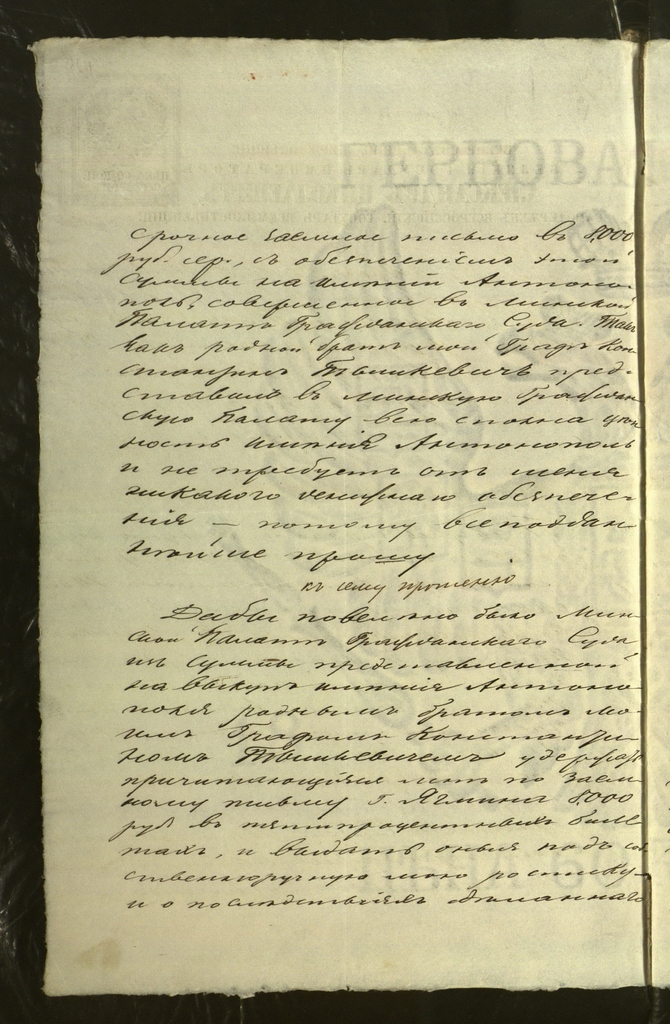 срочное заемное письмо въ 8,000
руб. сер., съ обезпеченіемъ этой
суммы на имѣніи Антоно-
поль, совершенное въ Минской
Палатѣ Гражданскаго Суда. Такъ
какъ родной братъ мой Графъ Кон-
стантинъ Тышкевичъ пред-
ставилъ въ Минскую Граждан-
скую Палату всю сполна
ность имѣнія Антонополь
и не требуетъ отъ меня
никакого обезпече-
нія — потому всеподдан-
нѣйше прошу
къ сему прошенію
Дабы повелѣно было Мин-
ской Палатѣ Гражданскаго Суда
изъ суммы представленной
на выкупъ имѣнія Антоно-
поля роднымъ братомъ мо-
имъ Графомъ Константи-
номъ Тышкевичемъ удержать
причитающійся мнѣ по заем-
ному письму г. Ягмина 8,000
руб. въ пятипроцентныхъ биле-
тахъ, и выдать оныя подъ со-
ственноручную мою росписку
и о послѣдствіяхъ